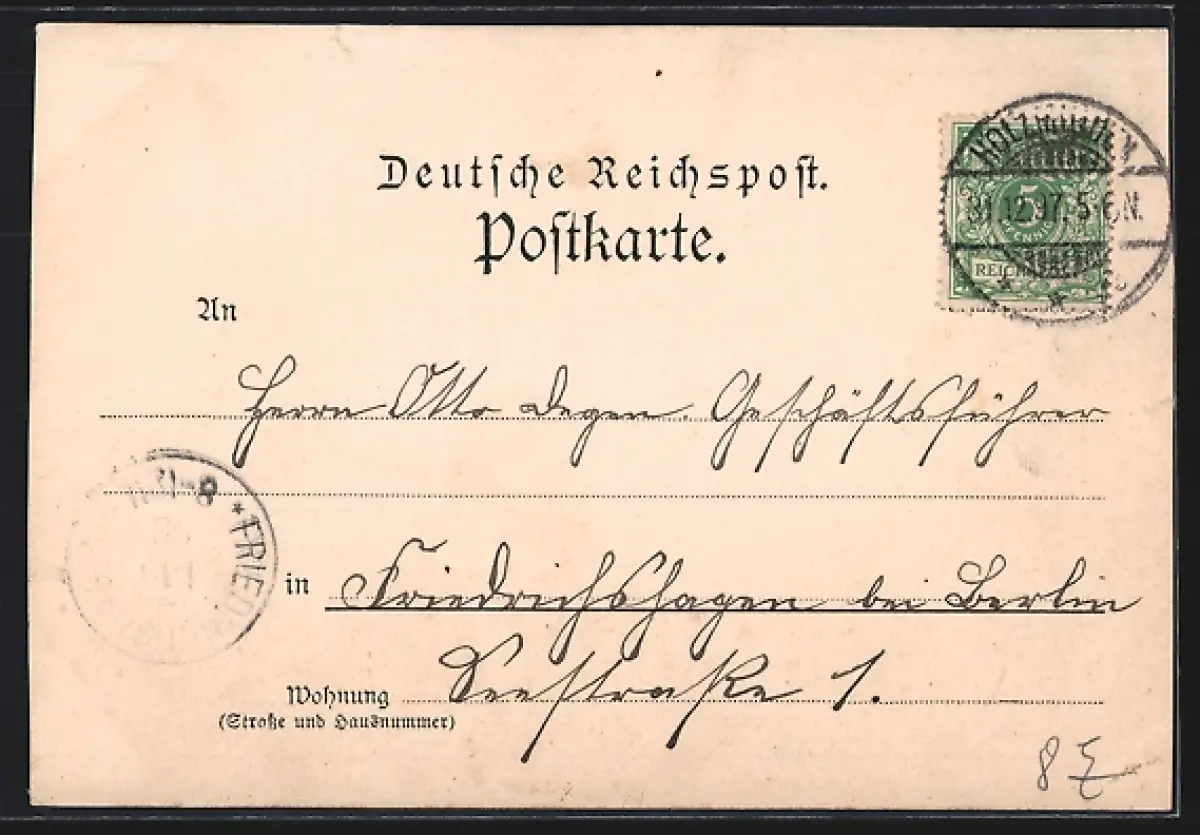 Deutsche Reichspost.
Postkarte.
HOLZMINDEN
31.12.97. 5-6N.
5
PFENNIG
REICH
An
Herrn Otto Degen. Geschäftsführer
8-9
* FRIED
in Friedrichshagen bei Berlin
Wohnung Seestraße 1.
(Straße und Hausnummer)